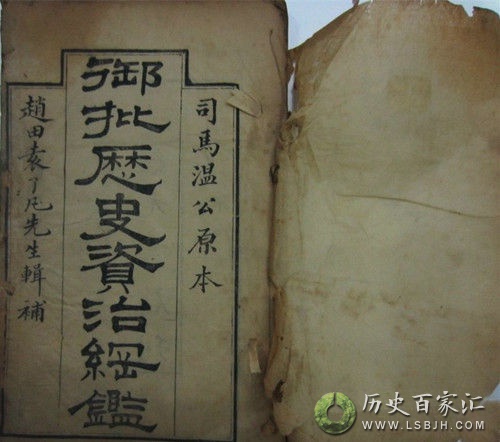 司馬温公原本
御批歷史資治綱鑑
趙田袁了凡先生輯補
历史百家汇
WWW.LSBJH.COM